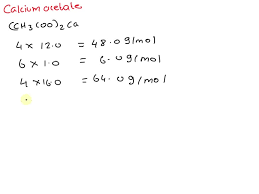 Calcium acetate
(CH3COO)2Ca
4 × 12.0 = 48.0 g/mol
6 × 1.0 = 6.0 g/mol
4 × 16.0 = 64.0 g/mol